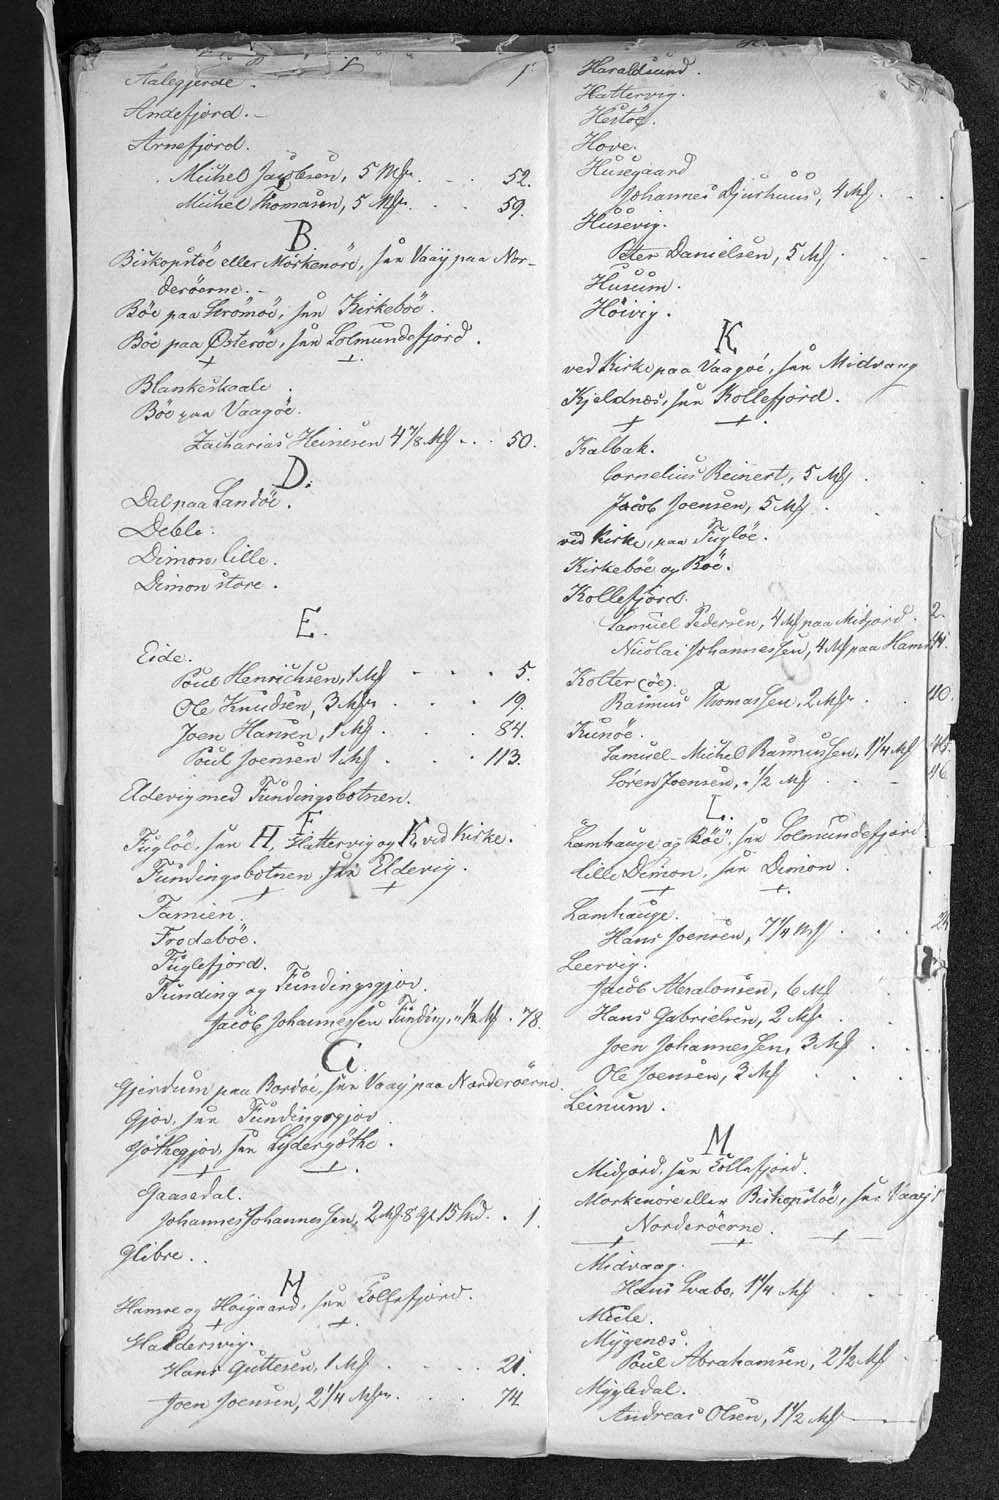 Aalegjerde.
Andefjord.
Arnefjord.
Michel Jacobsen, 5 Mk. . . 52.
Michel Thomasen, 5 Mk. . . 59.
B.
Biskopstöe eller Mörkenöre, see Vaaÿ paa Nor-
deröerne.
Böe paa Strömöe, see Kirkeböe.
Böe paa Østeröe, see Solmundefjord.
Blankeskaale.
Böe paa Vaagöe.
Zacharias Heinesen 4 7/8 Mk . . 50.
D.
Dal paa Sandöe.
Deble.
Dimon, lille.
Dimon store.
E.
Eide.
Poul Henrichsen, 1 Mk . . . . 5.
Ole Knudsen, 3 Mk . . . 19.
Joen Hansen, 1 Mk . . . 84.
Poul Joensen 1 Mk . . . 113.
Eldevig med Fundingsbotnen.
F
Fuglöe, see H, Hattervig og K, ved Kirke.
Fundingsbotnen see Eldevig.
Famien.
Frodeböe.
Fuglefjord.
Funding og Fundingsgjov.
Jacob Johannessen Funding, " ½ Mk . 78.
G.
Gjerdum paa Bordöe, see Vaaÿ paa Norderöerne.
Gjov, see Fundingsgjov
Göthegjov, see Sydergöthe.
Gaasedal.
Johannes Johannessen, 2 Mk 8 Gl 15 Sk. . 1.
Glibre.
H
Hamre og Höigaard, see Kollefjord.
Haldersvig.
Hans Guttesen, 1 Mk . . . . 21.
Joen Joensen, 2 1/4 Mk. . . . 74
Haraldsund.
Hattervig.
Hestöe.
Hove.
Husegaard
Johannes Djurhuus, 4 Mk . . .
Husevig.
Peter Danielsen, 5 Mk . . .
Husum.
Höivig.
K
ved Kirke paa Vaagöe, see Midvaag
Kjeldnæs, see Kollefjord.
Kalbak.
Cornelius Reinert, 5 Mk .
Jacob Joensen, 5 Mk . .
ved Kirke, paa Fuglöe.
Kirkeböe og Böe.
Kollefjord.
Samuel Pedersen, 4 Mk paa Midjord . 2.
Nicolai Johannessen, 4 Mk paa Hamre 44.
Kolter (öe).
Rasmus Thomassen, 2 Mk . . 40.
Kunöe.
Samuel Michel Rasmussen, 1 1/4 Mk 45.
Sören Joensen, " ½ Mk . . 46
L.
Lamhauge og Böe, see Solmundefjord.
lille Dimon, see Dimon.
Lamhauge.
Hans Joensen, 7 1/4 Mk . . .
Leervig.
Jacob Absalonsen, 6 Mk . .
Hans Gabrielsen, 2 Mk .
Joen Johannessen, 3 Mk . . .
Ole Joensen, 3 Mk . . .
Leinum.
M
Midjord, see Kollefjord.
Morkenöre eller Biskopstöe, see Vaaÿ
Norderöerne.
Midvaag.
Hans Svabo, 1 1/4 Mk . . .
Mule.
Mÿgenæs.
Poul Abrahamsen, 2 ½ Mk .
Mÿgledal.
Andreas Olsen, 1 ½ Mk